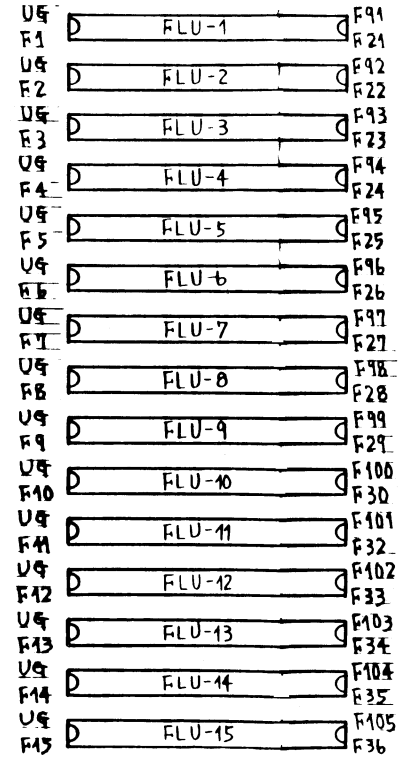 UG F91
FLU-1
F1 F21
UG F92
FLU-2
F2 F22
UG F93
FLU-3
F3 F23
UG F94
FLU-4
F4 F24
UG F95
FLU-5
F5 F25
UG F96
FLU-6
F6 F26
UG F97
FLU-7
F7 F27
UG F98
FLU-8
F8 F28
UG F99
FLU-9
F9 F29
UG F100
FLU-10
F10 F30
UG F101
FLU-11
F11 F32
UG F102
FLU-12
F12 F33
UG F103
FLU-13
F13 F34
UG F104
FLU-14
F14 F35
UG F105
FLU-15
F15 F36